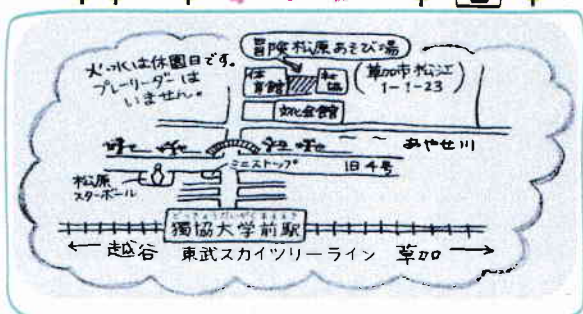 火・水は休園日です。
プレーリーダーは
いません。
冒険松原あそび場
体育館
社協
(草加市松江
1-1-23)
文化会館
あやせ川
ミニストップ
旧4号
松原
スターボール
どっきょうだいがくまええき
獨協大学前駅
← 越谷 東武スカイツリーライン 草加 →